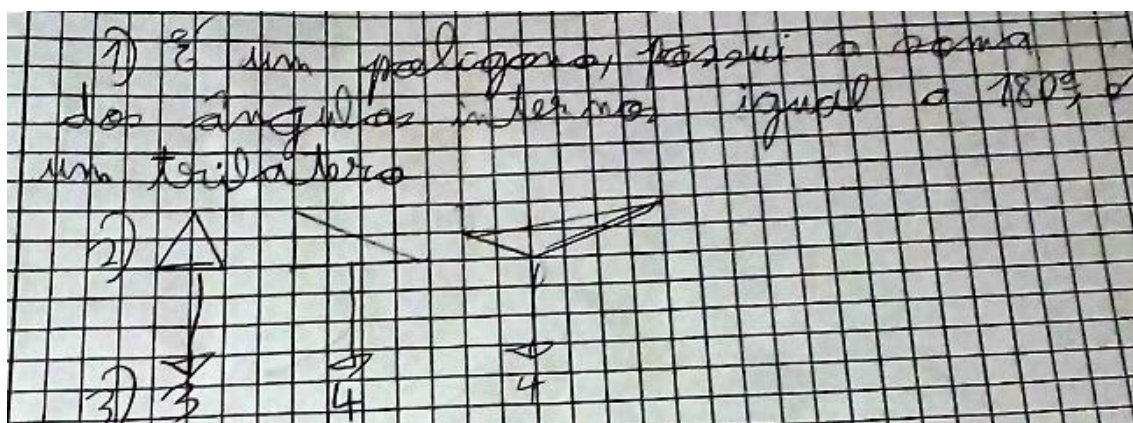 1) É um polígono, possui a soma
dos ângulos internos igual a 180º, é
um trilátero
2)
3) 3 4 4